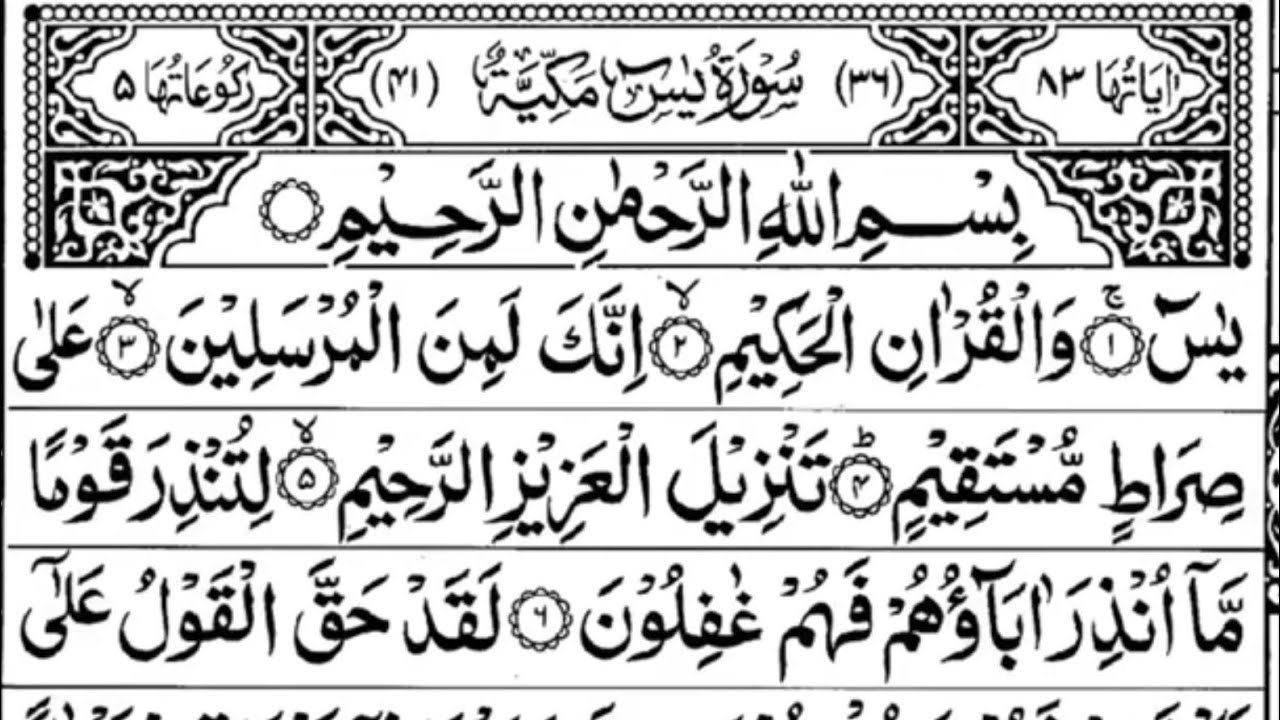 اٰيَاتُهَا ٨٣ (٣٦) سُوْرَةُ يٰسٓ مَكِّيَّةٌ (٤١) رُكُوْعَاتُهَا ٥
بِسْمِ اللّٰهِ الرَّحْمٰنِ الرَّحِيْمِ
يٰسٓ ۚ ﴿١﴾ وَالْقُرْاٰنِ الْحَكِيْمِ ۙ ﴿٢﴾ اِنَّكَ لَمِنَ الْمُرْسَلِيْنَ ۙ ﴿٣﴾ عَلٰى
صِرَاطٍ مُّسْتَقِيْمٍ ؕ ﴿۴﴾ تَنْزِيْلَ الْعَزِيْزِ الرَّحِيْمِ ۙ ﴿۵﴾ لِتُنْذِرَ قَوْمًا
مَّآ اُنْذِرَ اٰبَآؤُهُمْ فَهُمْ غٰفِلُوْنَ ﴿۶﴾ لَقَدْ حَقَّ الْقَوْلُ عَلٰٓى